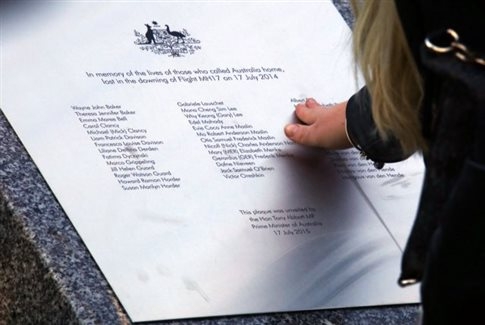 In memory of the lives of those who called Australia home,
lost in the downing of Flight MH17 on 17 July 2014
Wayne John Baker
Theresa Jennifer Baker
Emma Maree Bell
Carol Clancy
Michael (Mick) Clancy
Liam Patrick Davison
Francesca Louise Davison
Liliane Derden
Fatima Dyczynski
Marco Grippeling
Jill Helen Guard
Roger Watson Guard
Howard Roman Horder
Susan Marilyn Horder
Gabriele Lauschet
Mona Cheng Sim Lee
Why Keong (Gary) Lee
Edel Mahady
Evie Coco Anne Maslin
Mo Robert Anderson Maslin
Otis Samuel Frederick Maslin
Nicoll Charles Anderson
Mary
Gerardus
Dafne Nieveen
Jack Samuel O'Brien
Victor Oreshkin
Albert
van den Hende
This plaque was unveiled by
the Hon Tony Abbott MP
Prime Minister of Australia
17 July 2015